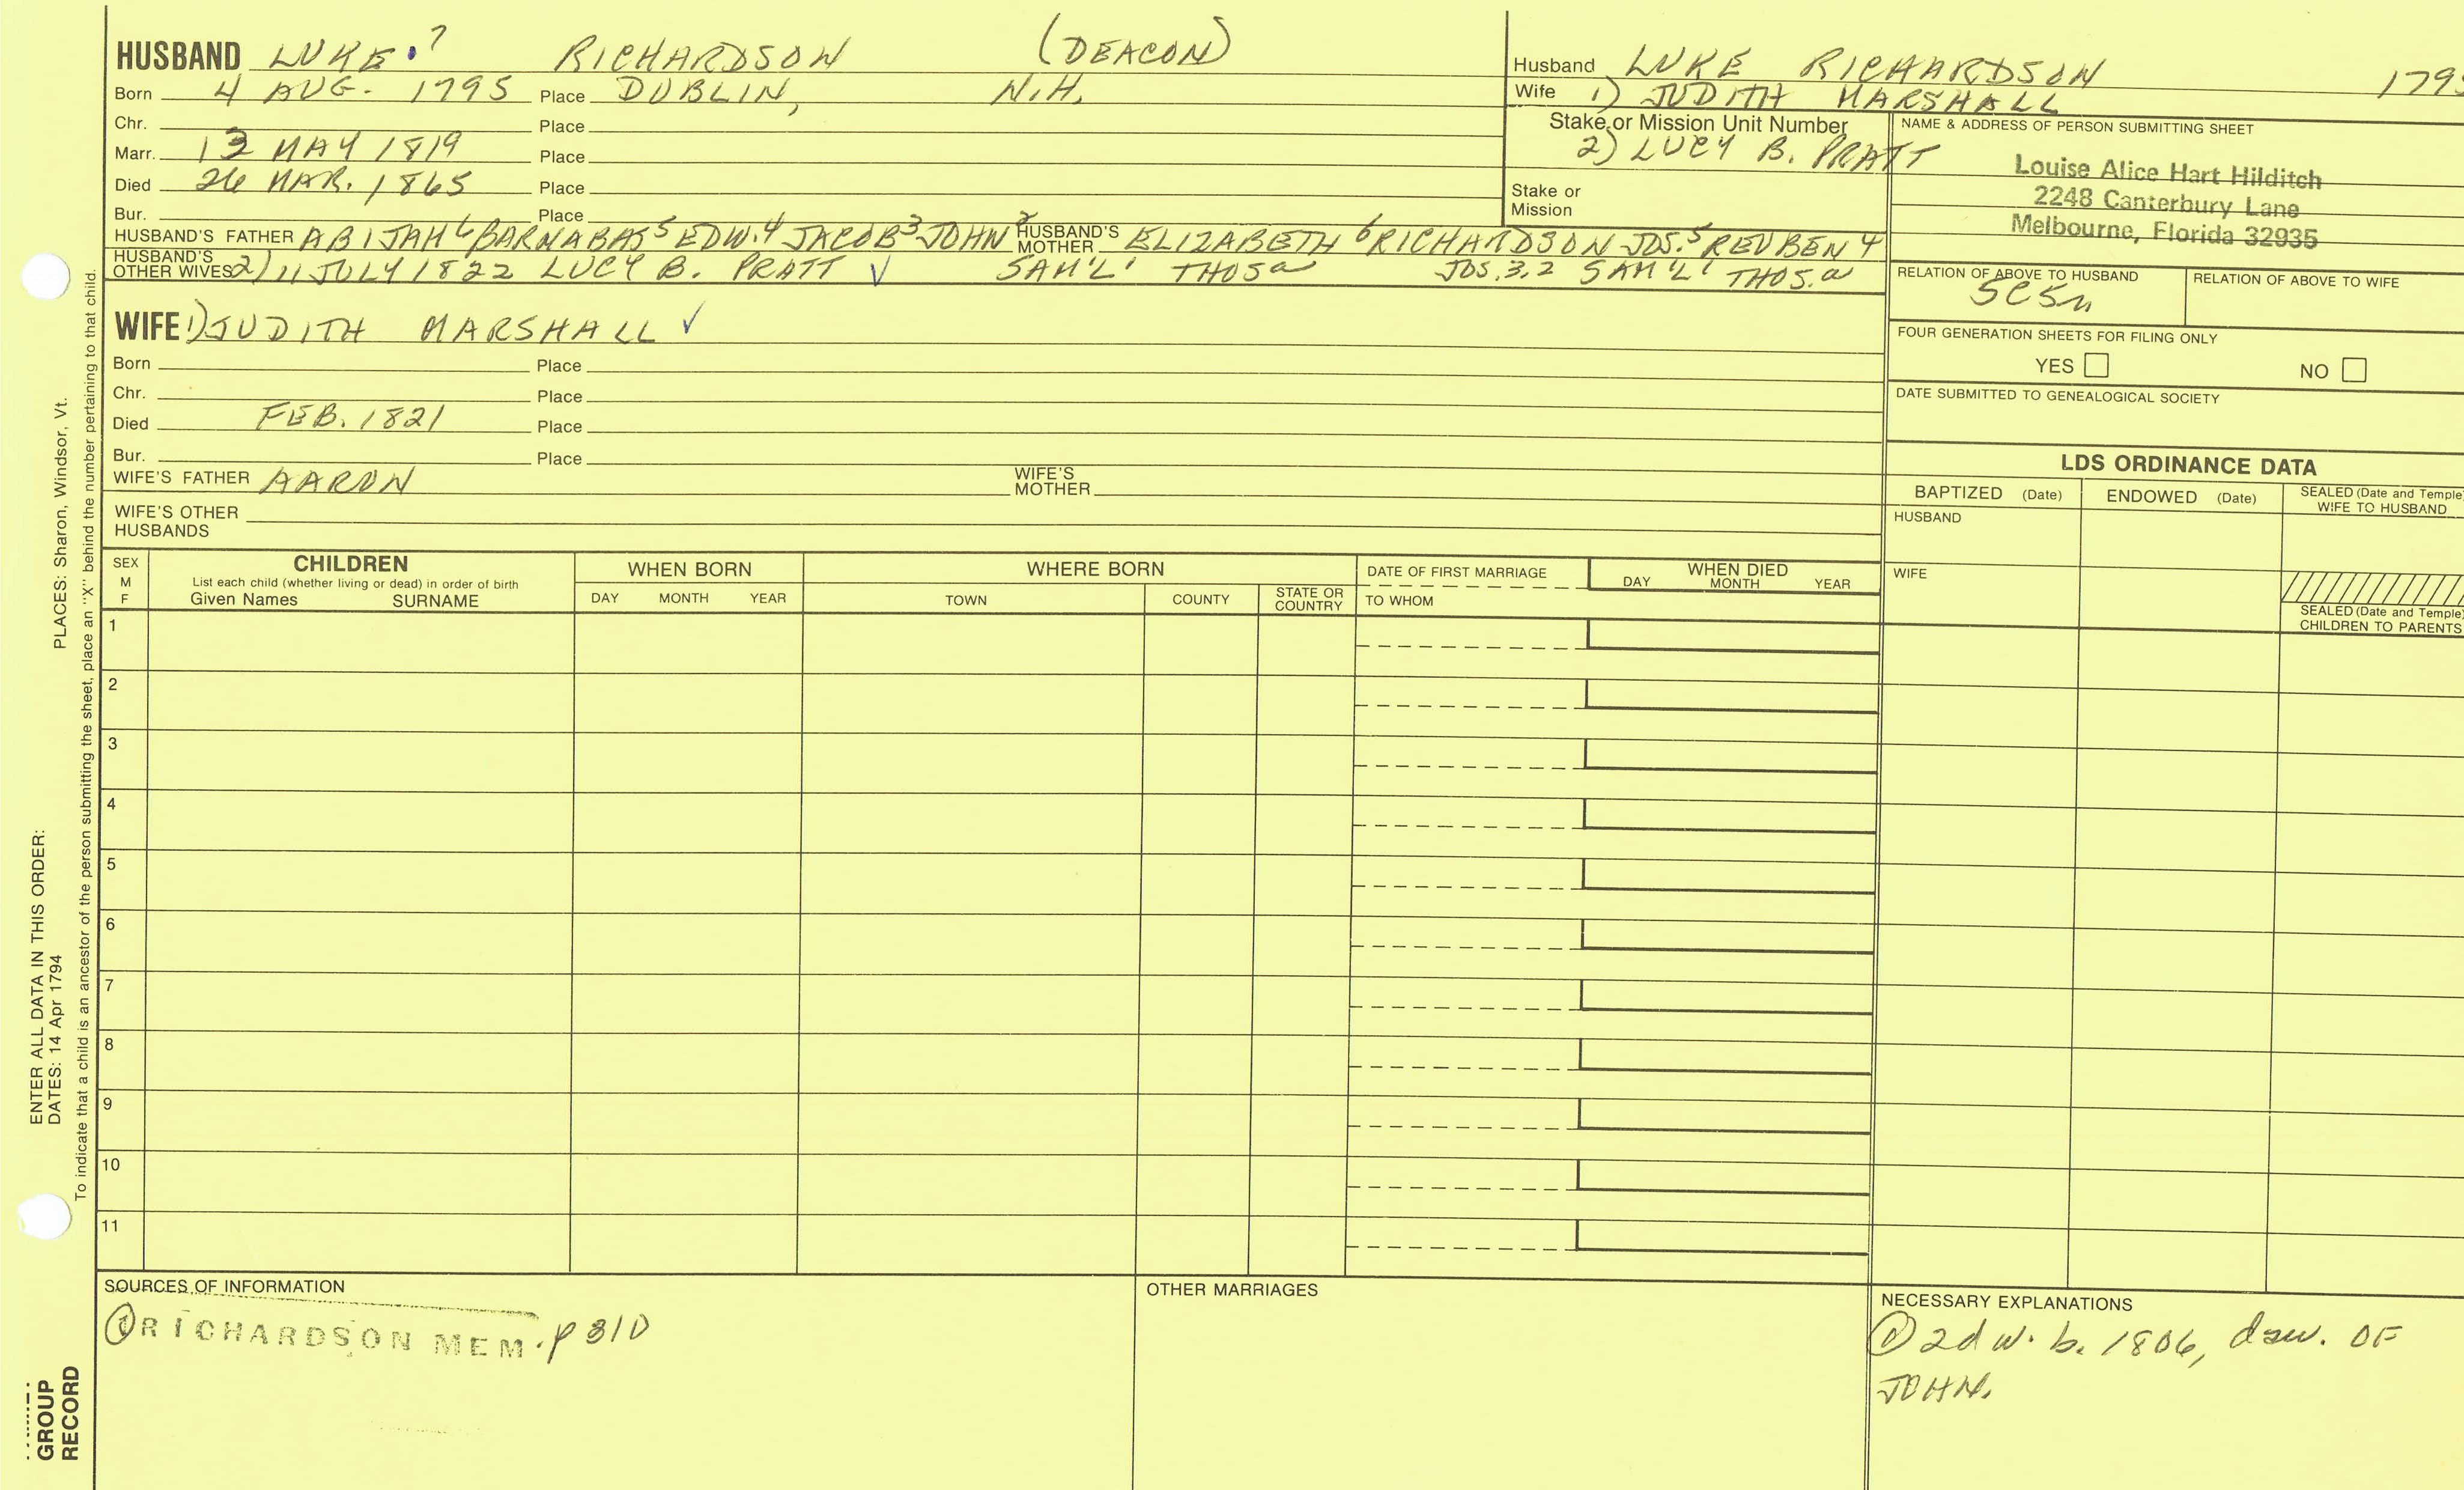 HUSBAND LUKE 7 RICHARDSON (DEACON)
Born 4 AUG. 1795 Place DUBLIN, N.H.
Chr. Place
Marr. 13 MAY 1819 Place
Died 26 MAR. 1865 Place
Bur. Place
HUSBAND'S FATHER ABIJAH 6 BARNABAS 5 EDW. 4 JACOB 3 JOHN 2 HUSBAND'S MOTHER ELIZABETH 6 RICHARDSON JOS. 5 REUBEN 4
HUSBAND'S OTHER WIVES 2) 11 JULY 1822 LUCY B. PRATT ✓ SAM'L 1 THOS a JOS. 3,2 SAM'L 1 THOS. a
Husband LUKE RICHARDSON 1795
Wife 1) JUDITH MARSHALL
Stake or Mission Unit Number
2) LUCY B. PRATT
Stake or
Mission
NAME & ADDRESS OF PERSON SUBMITTING SHEET
Louise Alice Hart Hilditch
2248 Canterbury Lane
Melbourne, Florida 32935
RELATION OF ABOVE TO HUSBAND RELATION OF ABOVE TO WIFE
FOUR GENERATION SHEETS FOR FILING ONLY
YES NO
DATE SUBMITTED TO GENEALOGICAL SOCIETY
WIFE 1) JUDITH MARSHALL ✓
Born Place
Chr. Place
Died FEB. 1821 Place
Bur. Place
WIFE'S FATHER AARON WIFE'S MOTHER
WIFE'S OTHER
HUSBANDS
LDS ORDINANCE DATA
BAPTIZED (Date) ENDOWED (Date) SEALED (Date and Temple)
WIFE TO HUSBAND
HUSBAND
WIFE
SEALED (Date and Temple)
CHILDREN TO PARENTS
SEX
M
F
CHILDREN
List each child (whether living or dead) in order of birth
Given Names SURNAME
WHEN BORN
DAY MONTH YEAR
WHERE BORN
TOWN COUNTY STATE OR COUNTRY
DATE OF FIRST MARRIAGE
TO WHOM
WHEN DIED
DAY MONTH YEAR
1
2
3
4
5
6
7
8
9
10
11
SOURCES OF INFORMATION
① RICHARDSON MEM. p 310
OTHER MARRIAGES
NECESSARY EXPLANATIONS
① 2d w. b. 1806, dau. OF
JOHN.
ENTER ALL DATA IN THIS ORDER:
DATES: 14 Apr 1794 PLACES: Sharon, Windsor, Vt.
To indicate that a child is an ancestor of the person submitting the sheet, place an "X" behind the number pertaining to that child.
GROUP
RECORD